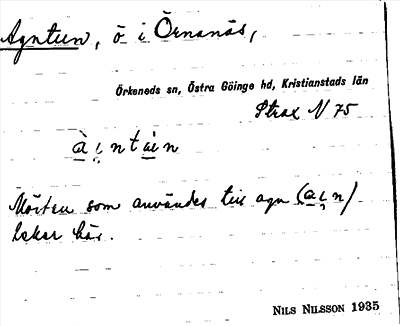 Agntun, ö i Örnanäs,
Örkeneds sn, Östra Göinge hd, Kristianstads län
Strax N 75
Mörten som användes till agn
leker här.
NILS NILSSON 1935